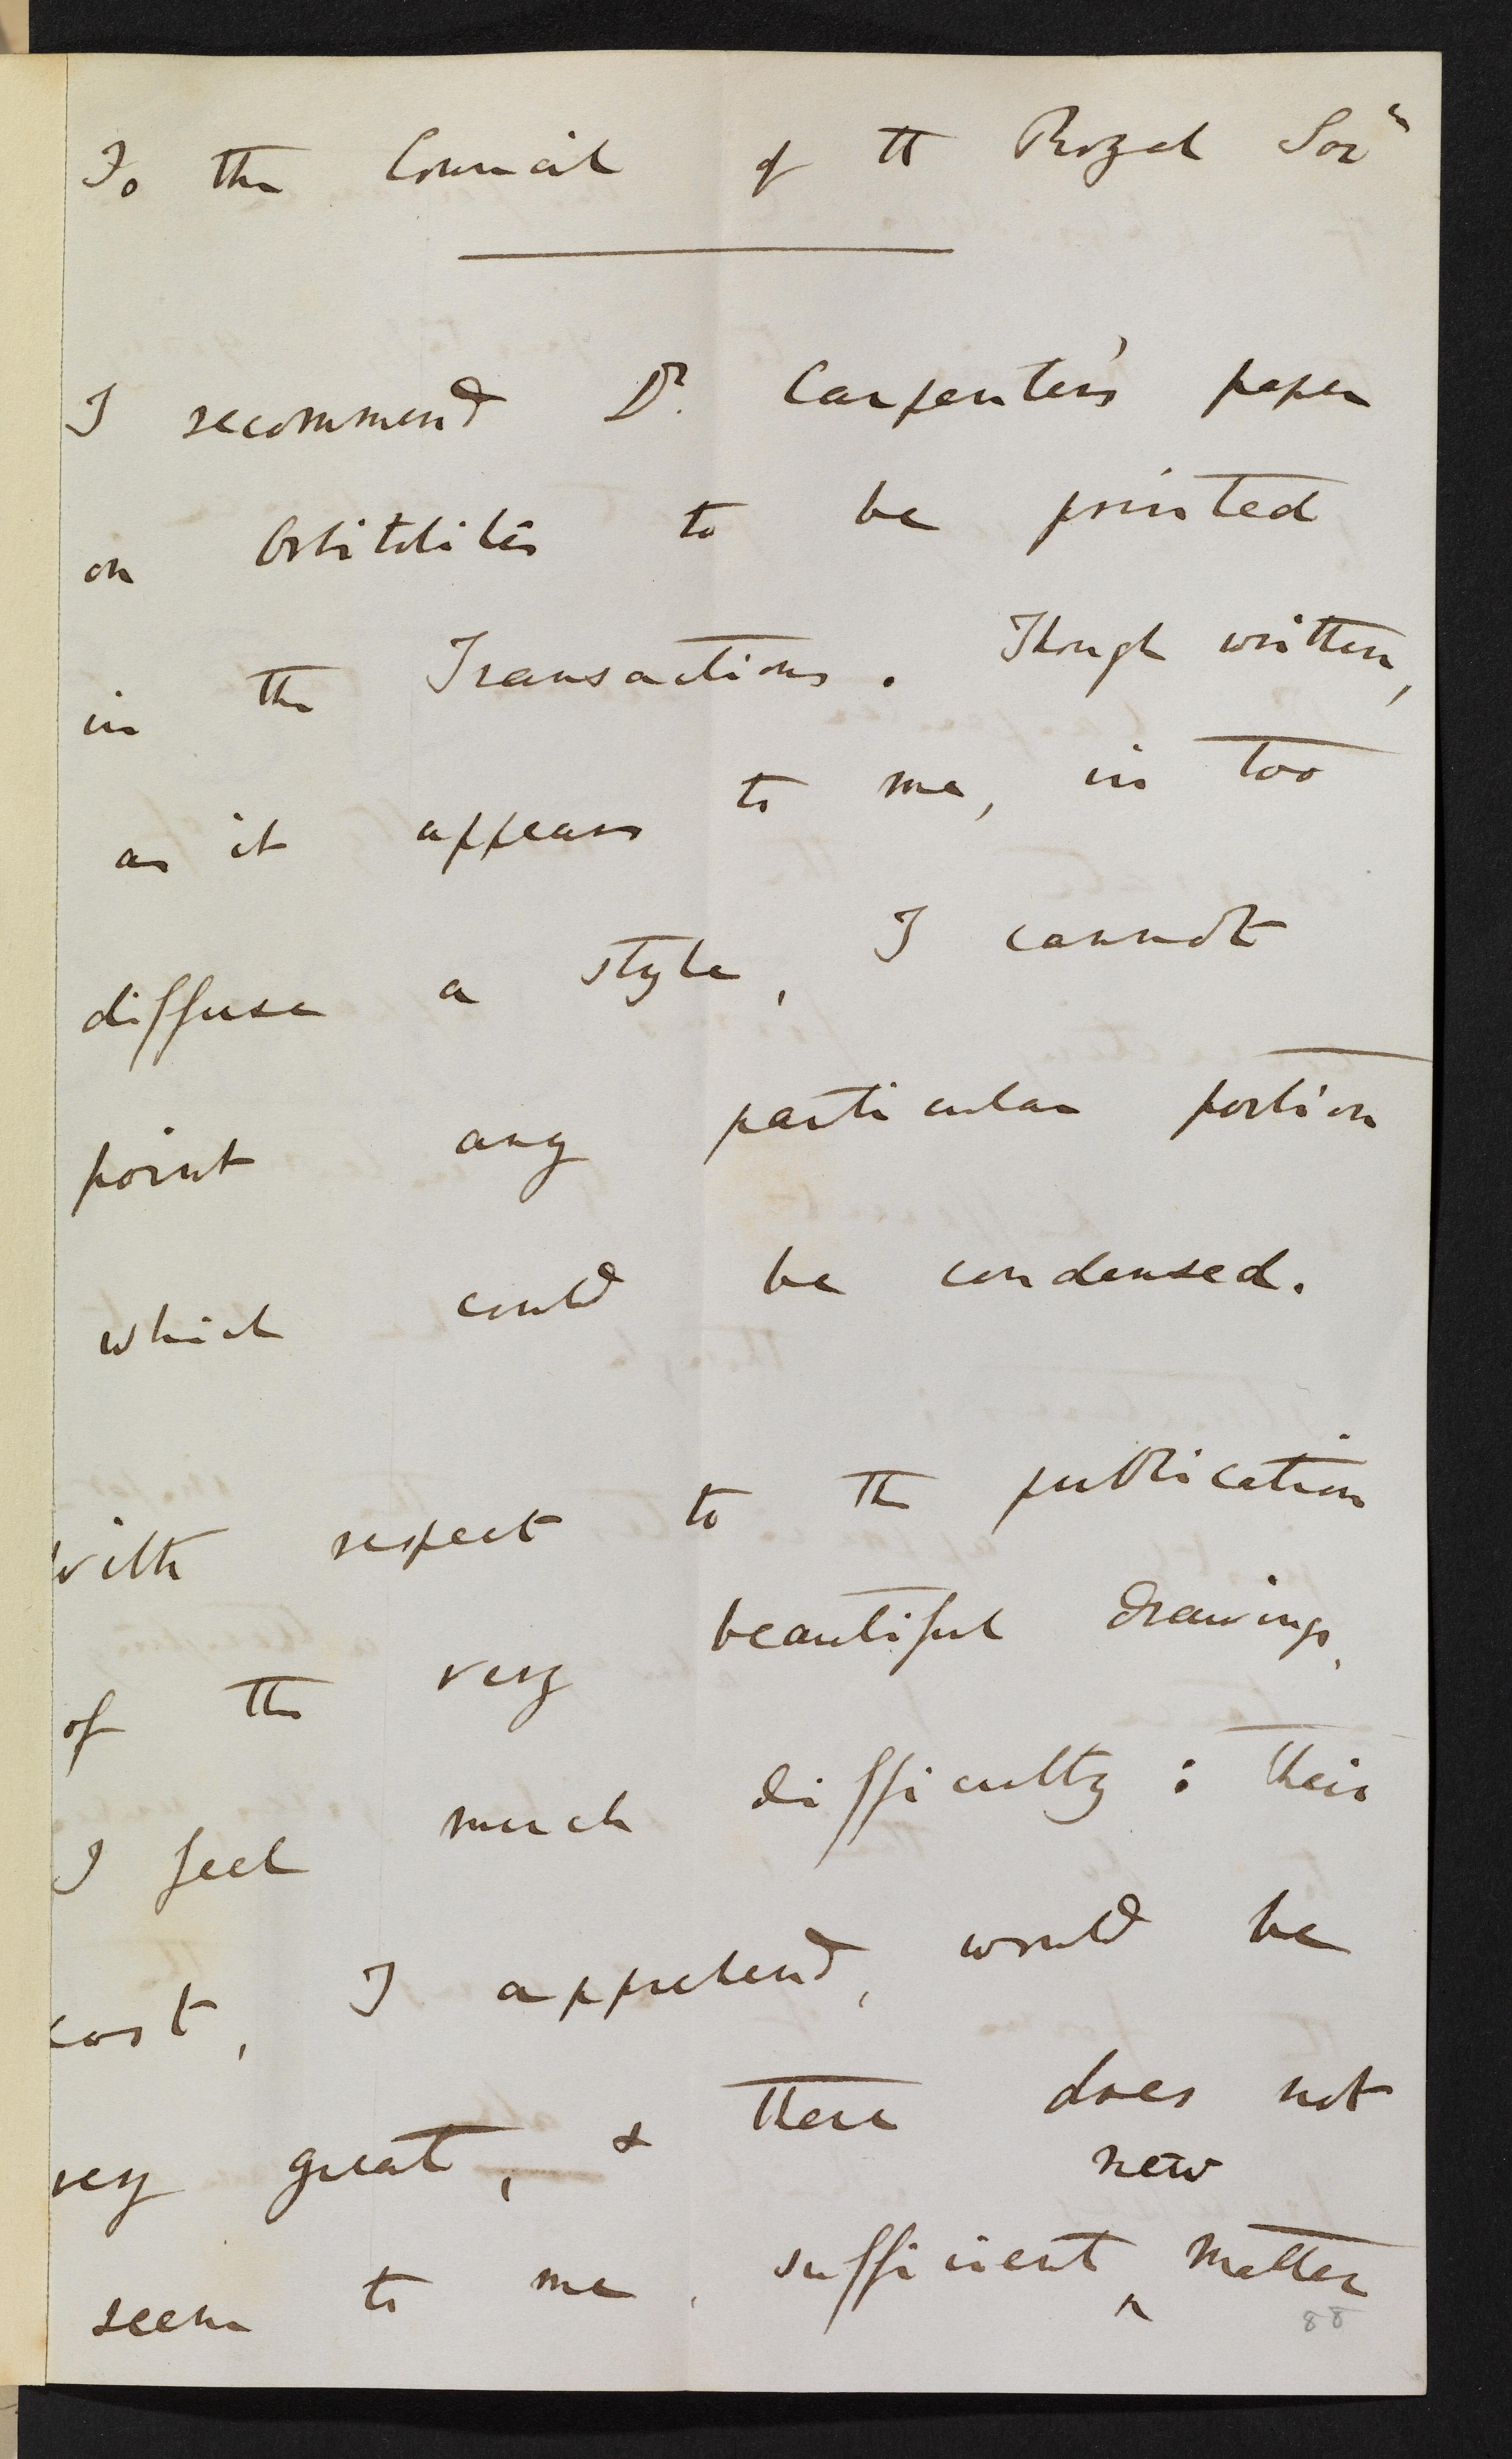 To the Council of the Royal Socy
I recommend Dr. Carpenter's paper
on Orbitolites to be printed
in the Transactions. Though written,
as it appears to me, in too
diffuse a style, I cannot
point any particular portion
which could be condensed.
With respect to the publication
of the very beautiful drawings,
I feel much difficulty: their
cost, I apprehend, would be
very great, & there does not
new
seem to me, sufficient ^ matter
88